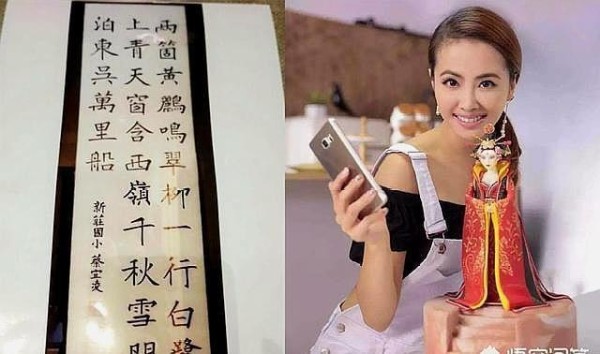 兩箇黃鸝鳴翠柳一行白鷺
上青天窗含西嶺千秋雪門
泊東吳萬里船
新莊國小 蔡宜凌
悟空问答